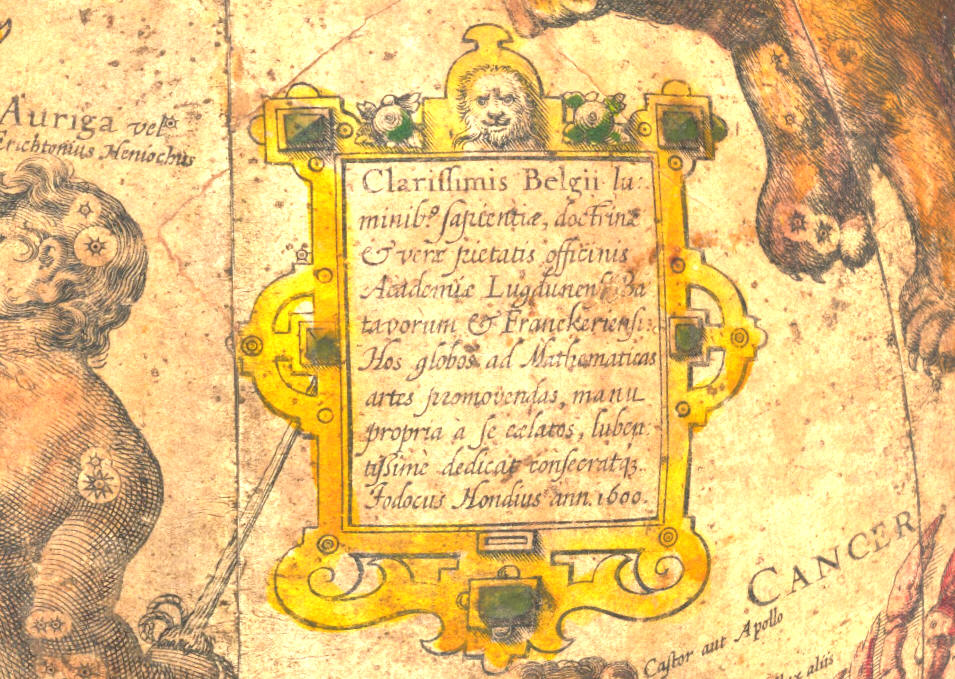 Auriga vel
Erichtonius Heniochus
Clarissimis Belgii lu:
minib⁹ sapientiæ, doctrinæ
& veræ pietatis officinis
Academiæ Lugdunens. Ba
tavorum & Franekeriensi:
Hos globos ad Mathematicas
artes promovendas, manu
propria a se cælatos, luben:
tissimè dedicat consecratqꝫ.
Jodocus Hondius ann. 1600.
CANCER
Castor aut Apollo
aliis